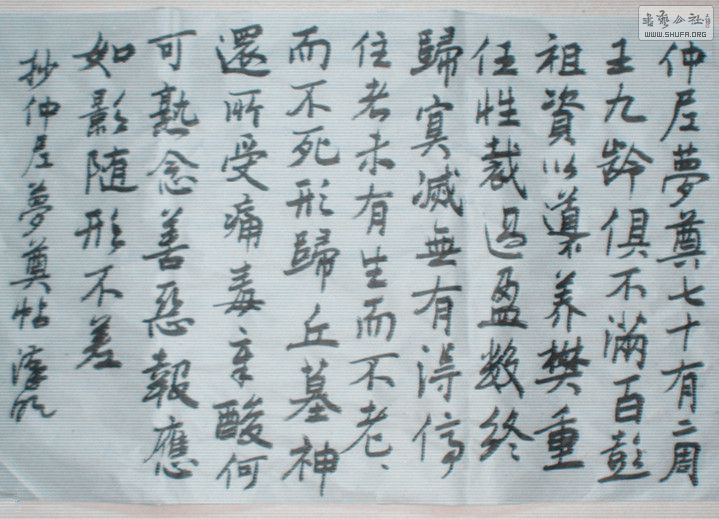 仲尼夢奠七十有二周
王九齡俱不滿百彭
祖資以導养樊重
任性裁過盈数終
歸寞滅無有得停
住者未有生而不老、
而不死形歸丘墓神
還所受痛毒辛酸何
可熟念善惡報應
如影随形不差
抄仲尼夢奠帖
書藝公社
WWW.SHUFA.ORG